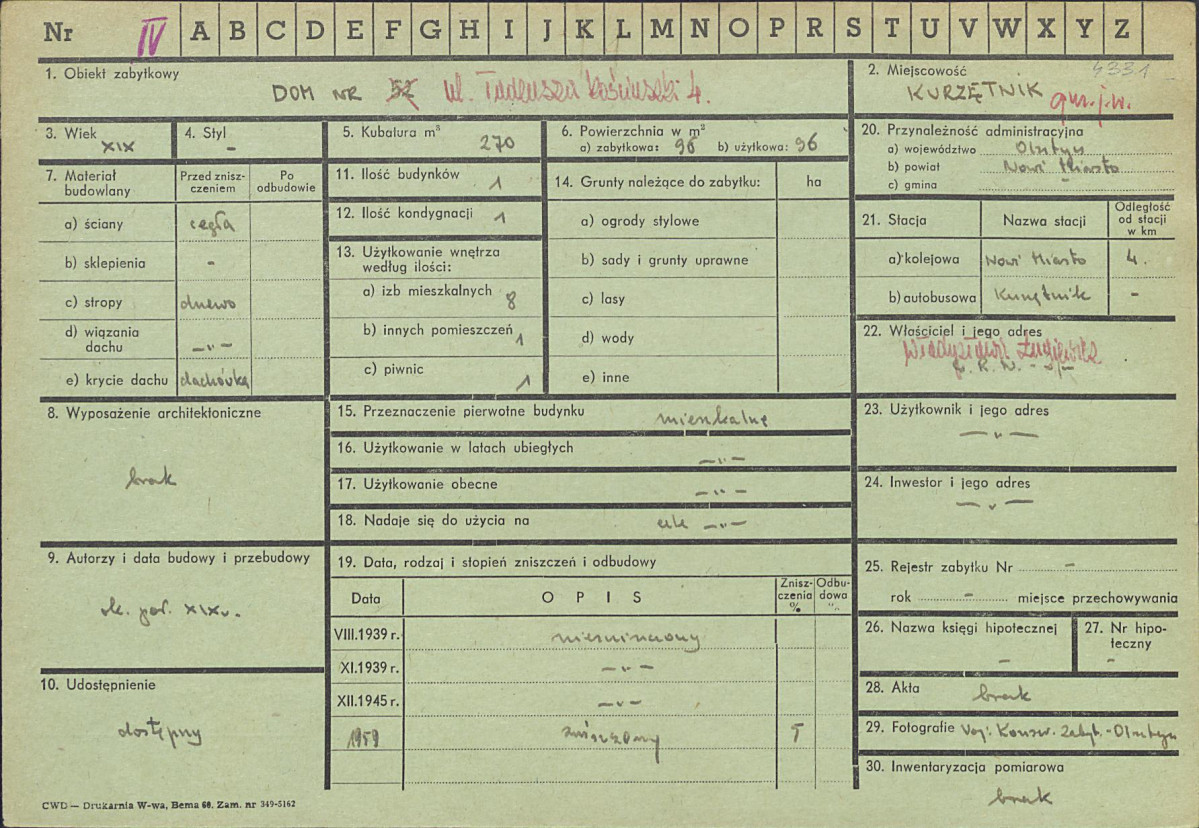 Nr IV A B C D E F G H I J K L M N O P R S T U V W X Y Z
1. Obiekt zabytkowy
DOM NR 52 ul. Tadeusza Kościuszki 4.
2. Miejscowość 4331
KURZĘTNIK gm. j.w.
3. Wiek
XIX
4. Styl
–
5. Kubatura m³
270
6. Powierzchnia w m²
a) zabytkowa: 96 b) użytkowa: 96
20. Przynależność administracyjna
a) województwo Olsztyn
b) powiat Nowe Miasto
c) gmina –
7. Materiał budowlany
Przed zniszczeniem
Po odbudowie
a) ściany cegła
b) sklepienia -
c) stropy drewno
d) wiązania dachu –„–
e) krycie dachu dachówka
11. Ilość budynków 1
12. Ilość kondygnacji 1
13. Użytkowanie wnętrza według ilości:
a) izb mieszkalnych 8
b) innych pomieszczeń 1
c) piwnic 1
14. Grunty należące do zabytku: ha
a) ogrody stylowe
b) sady i grunty uprawne
c) lasy
d) wody
e) inne
21. Stacja Nazwa stacji Odległość od stacji w km
a) kolejowa Nowe Miasto 4.
b) autobusowa Kurzętnik –
22. Właściciel i jego adres
Władysława
8. Wyposażenie architektoniczne
brak
15. Przeznaczenie pierwotne budynku mieszkalne
16. Użytkowanie w latach ubiegłych –„–
17. Użytkowanie obecne –„–
18. Nadaje się do użycia na cele –„–
23. Użytkownik i jego adres
–„–
24. Inwestor i jego adres
–„–
9. Autorzy i data budowy i przebudowy
poł. XIX w.
19. Data, rodzaj i stopień zniszczeń i odbudowy
Data OPIS Zniszczenia % Odbudowa %
VIII.1939 r. niezniszczony
XI.1939 r. –„–
XII.1945 r. –„–
1959 zniszczony 5
25. Rejestr zabytku Nr –
rok – miejsce przechowywania
26. Nazwa księgi hipotecznej
–
27. Nr hipoteczny
–
10. Udostępnienie
dostępny
28. Akta brak
29. Fotografie Woj. Konserw. Zabyt. - Olsztyn
30. Inwentaryzacja pomiarowa
brak
CWD — Drukarnia W-wa, Bema 60. Zam. nr 349-5162